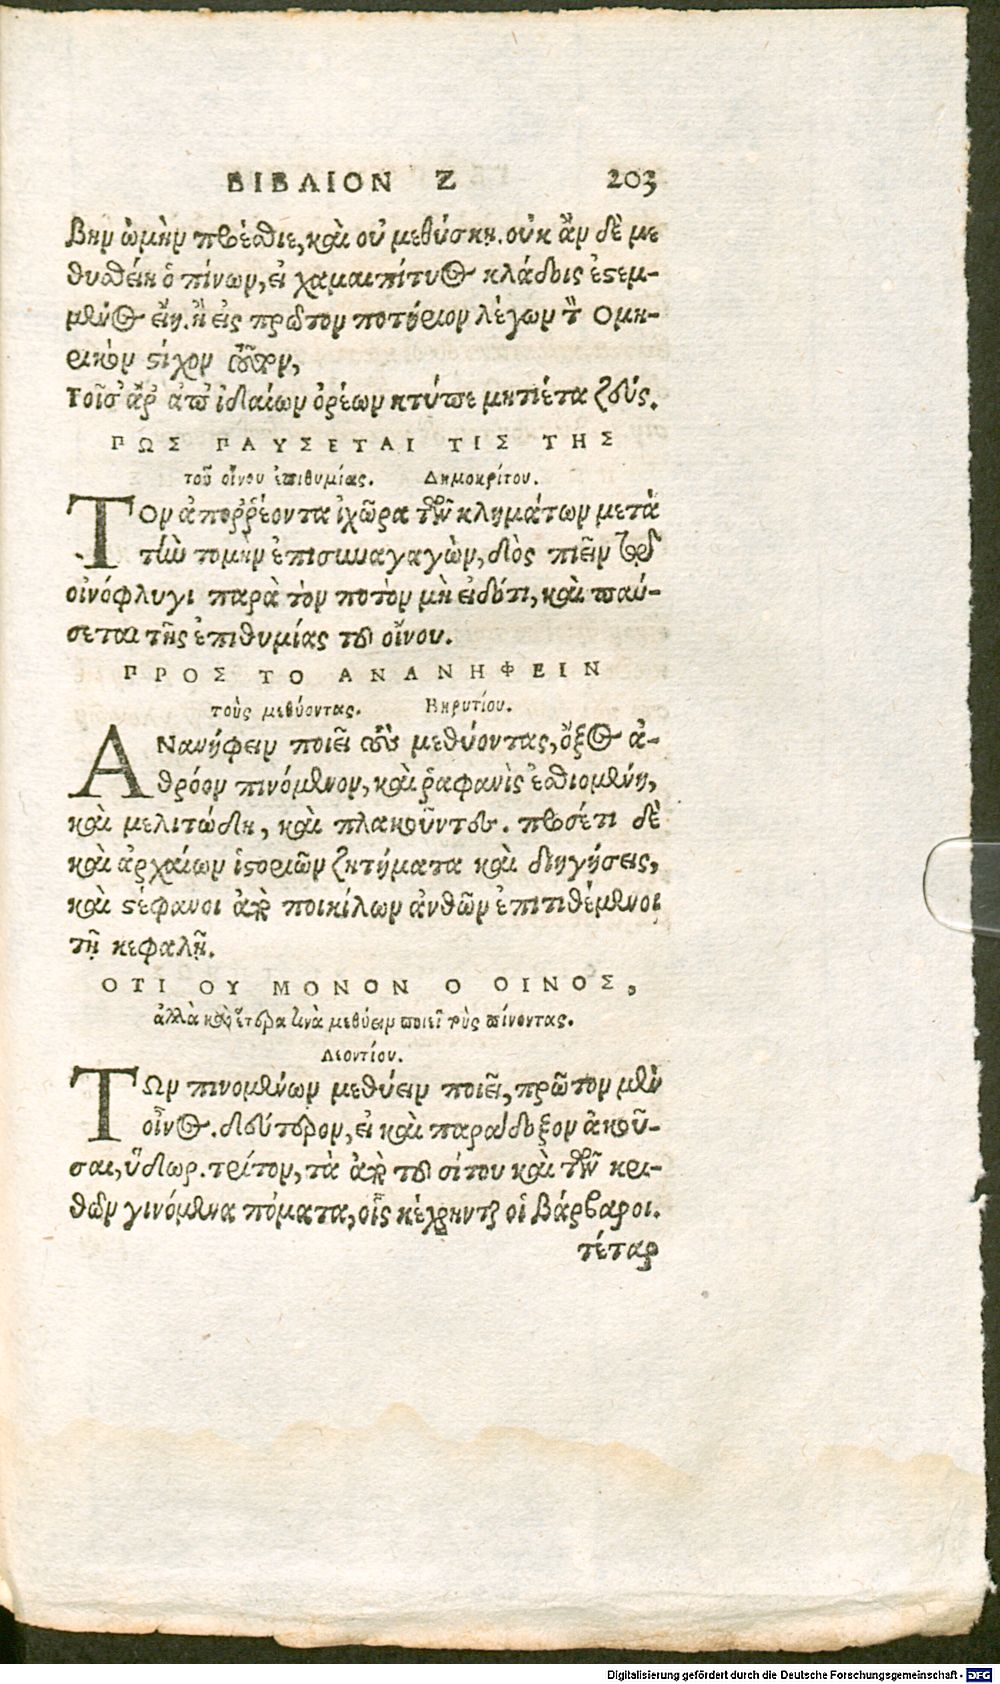 ΒΙΒΛΙΟΝ Ζ 203
βην ὠμὴν προέσθιε, καὶ οὐ μεθύσκῃ. οὐκ ἂν δὲ με
θυσθείη ὁ πίνων, εἰ χαμαιπίτυος κλάδοις ἐστεμ-
μένος εἴη. ἢ εἰς πρῶτον ποτήριον λέγων τὸν Ομη-
ρικὸν στίχον οὗτον,
Τοῖσ' ἄρ' ἀπ' ἰδαίων ὀρέων κτύπε μητίετα ζεύς.
ΠΩΣ ΠΑΥΣΕΤΑΙ ΤΙΣ ΤΗΣ
τοῦ οἴνου ἐπιθυμίας. Δημοκρίτου.
ΤΟν ἀποῤῥέοντα ἰχῶρα τῶν κλημάτων μετὰ
τὴν τομὴν ἐπισυναγαγὼν, δὸς πιεῖν τῷ
οἰνόφλυγι παρὰ τὸν ποτὸν μὴ εἰδότι, καὶ παύ-
σεται τῆς ἐπιθυμίας τοῦ οἴνου.
ΠΡΟΣ ΤΟ ΑΝΑΝΗΦΕΙΝ
τοὺς μεθύοντας. Βηρυτίου.
ΑΝανήφειν ποιεῖ τοὺς μεθύοντας, ὄξος ἀ-
θρόον πινόμενον, καὶ ῥαφανὶς ἐσθιομένη,
καὶ μελιτώδη, καὶ πλακοῦντες. προσέτι δὲ
καὶ ἀρχαίων ἱστοριῶν ζητήματα καὶ διηγήσεις,
καὶ στέφανοι ἀπὸ ποικίλων ἀνθῶν ἐπιτιθέμενοι
τῇ κεφαλῇ.
ΟΤΙ ΟΥ ΜΟΝΟΝ Ο ΟΙΝΟΣ,
ἀλλὰ καὶ ἕτερα τινὰ μεθύειν ποιεῖ τοὺς πίνοντας.
Λεοντίου.
ΤΩν πινομένων μεθύειν ποιεῖ, πρῶτον μὲν
οἶνος. δεύτερον, εἰ καὶ παράδοξον ἀκοῦ-
σαι, ὕδωρ. τρίτον, τὰ ἀπὸ τοῦ σίτου καὶ τῶν κρι-
θῶν γινόμενα πόματα, οἷς κέχρηνται οἱ Βάρβαροι.
τέταρ
Digitalisierung gefördert durch die Deutsche Forschungsgemeinschaft - DFG